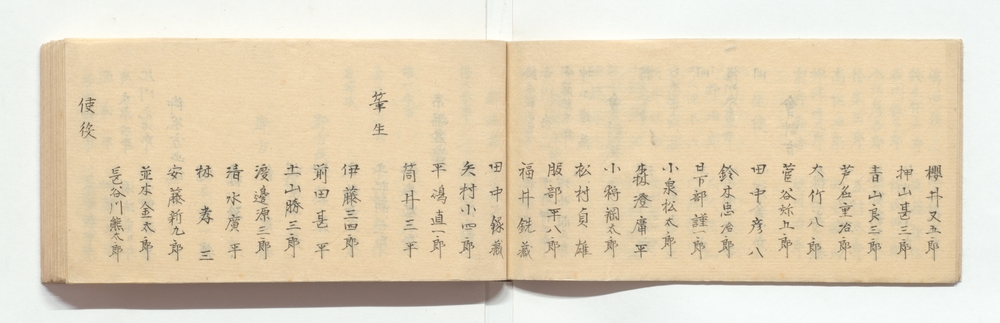 櫻井又五郎
押山甚三郎
青山良三郎
芦名重治郎
大竹八郎
菅谷弥五郎
田中彦八
鈴木忠治郎
日下部謹一郎
小泉松太郎
森澄庸平
小崎彌太郎
松村貞雄
服部平八郎
福井鋭藏
田中録藏
矢村小四郎
平嶋直一郎
筒井三平
筆生
伊藤三四郎
前田甚平
土山勝三郎
渡邊源三郎
清水廣平
林寿三
安藤新九郎
並木金太郎
長谷川熊太郎
使役